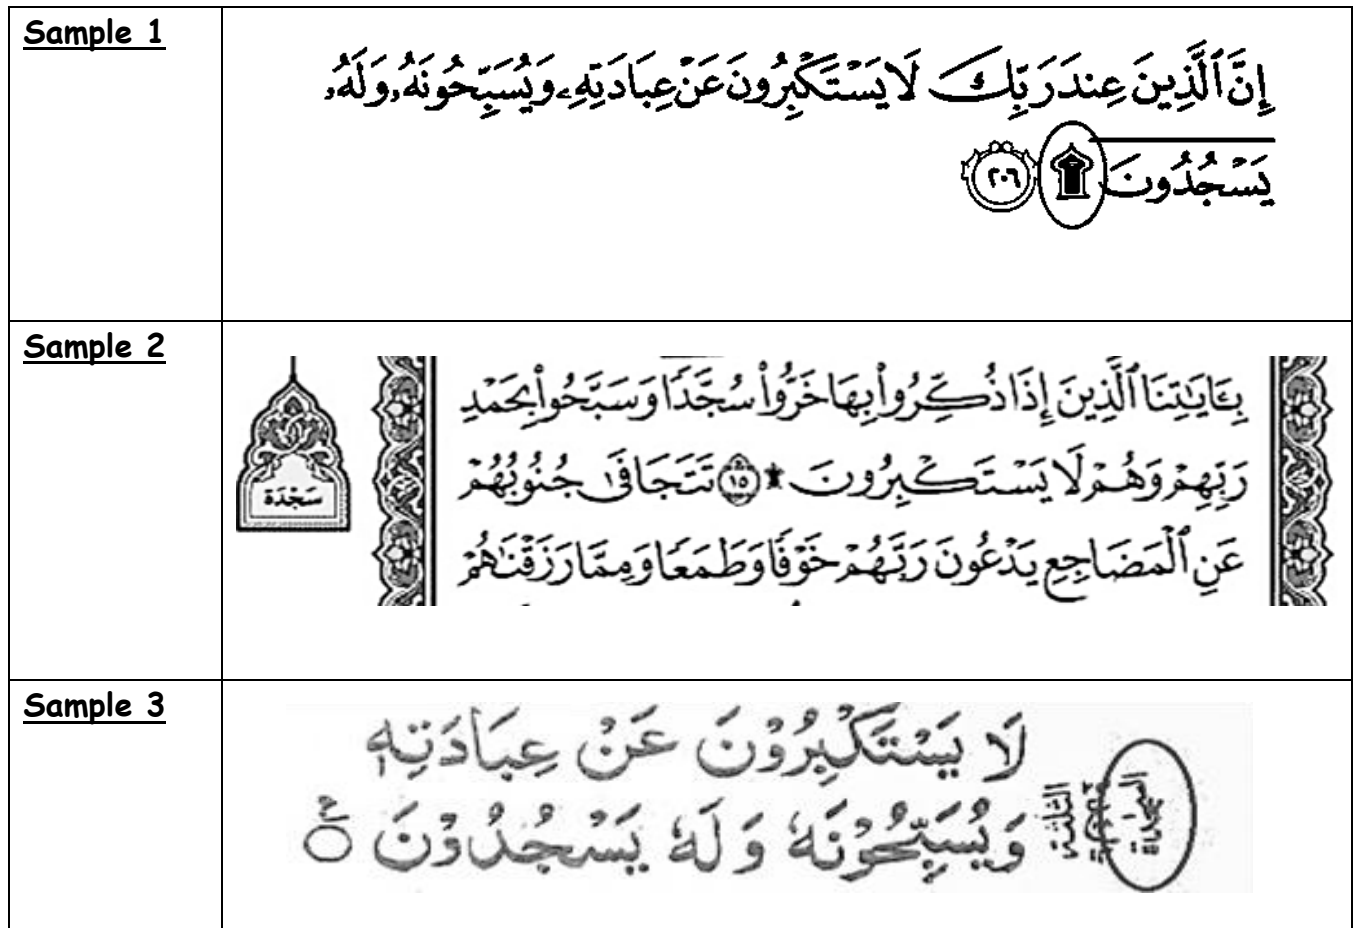 Sample 1
إِنَّ ٱلَّذِينَ عِندَ رَبِّكَ لَا يَسْتَكْبِرُونَ عَنْ عِبَادَتِهِۦ وَيُسَبِّحُونَهُۥ وَلَهُۥ
يَسْجُدُونَ ۩ ٢٠٦
Sample 2
بِـَٔايَٰتِنَا ٱلَّذِينَ إِذَا ذُكِّرُوا۟ بِهَا خَرُّوا۟ سُجَّدًا وَسَبَّحُوا۟ بِحَمْدِ
رَبِّهِمْ وَهُمْ لَا يَسْتَكْبِرُونَ ★ ١٥ تَتَجَافَىٰ جُنُوبُهُمْ
عَنِ ٱلْمَضَاجِعِ يَدْعُونَ رَبَّهُمْ خَوْفًا وَطَمَعًا وَمِمَّا رَزَقْنَٰهُمْ
سَجْدَة
Sample 3
لَا يَسْتَكْبِرُوْنَ عَنْ عِبَادَتِهٖ
وَيُسَبِّحُوْنَهٗ وَلَهٗ يَسْجُدُوْنَ
السجدة